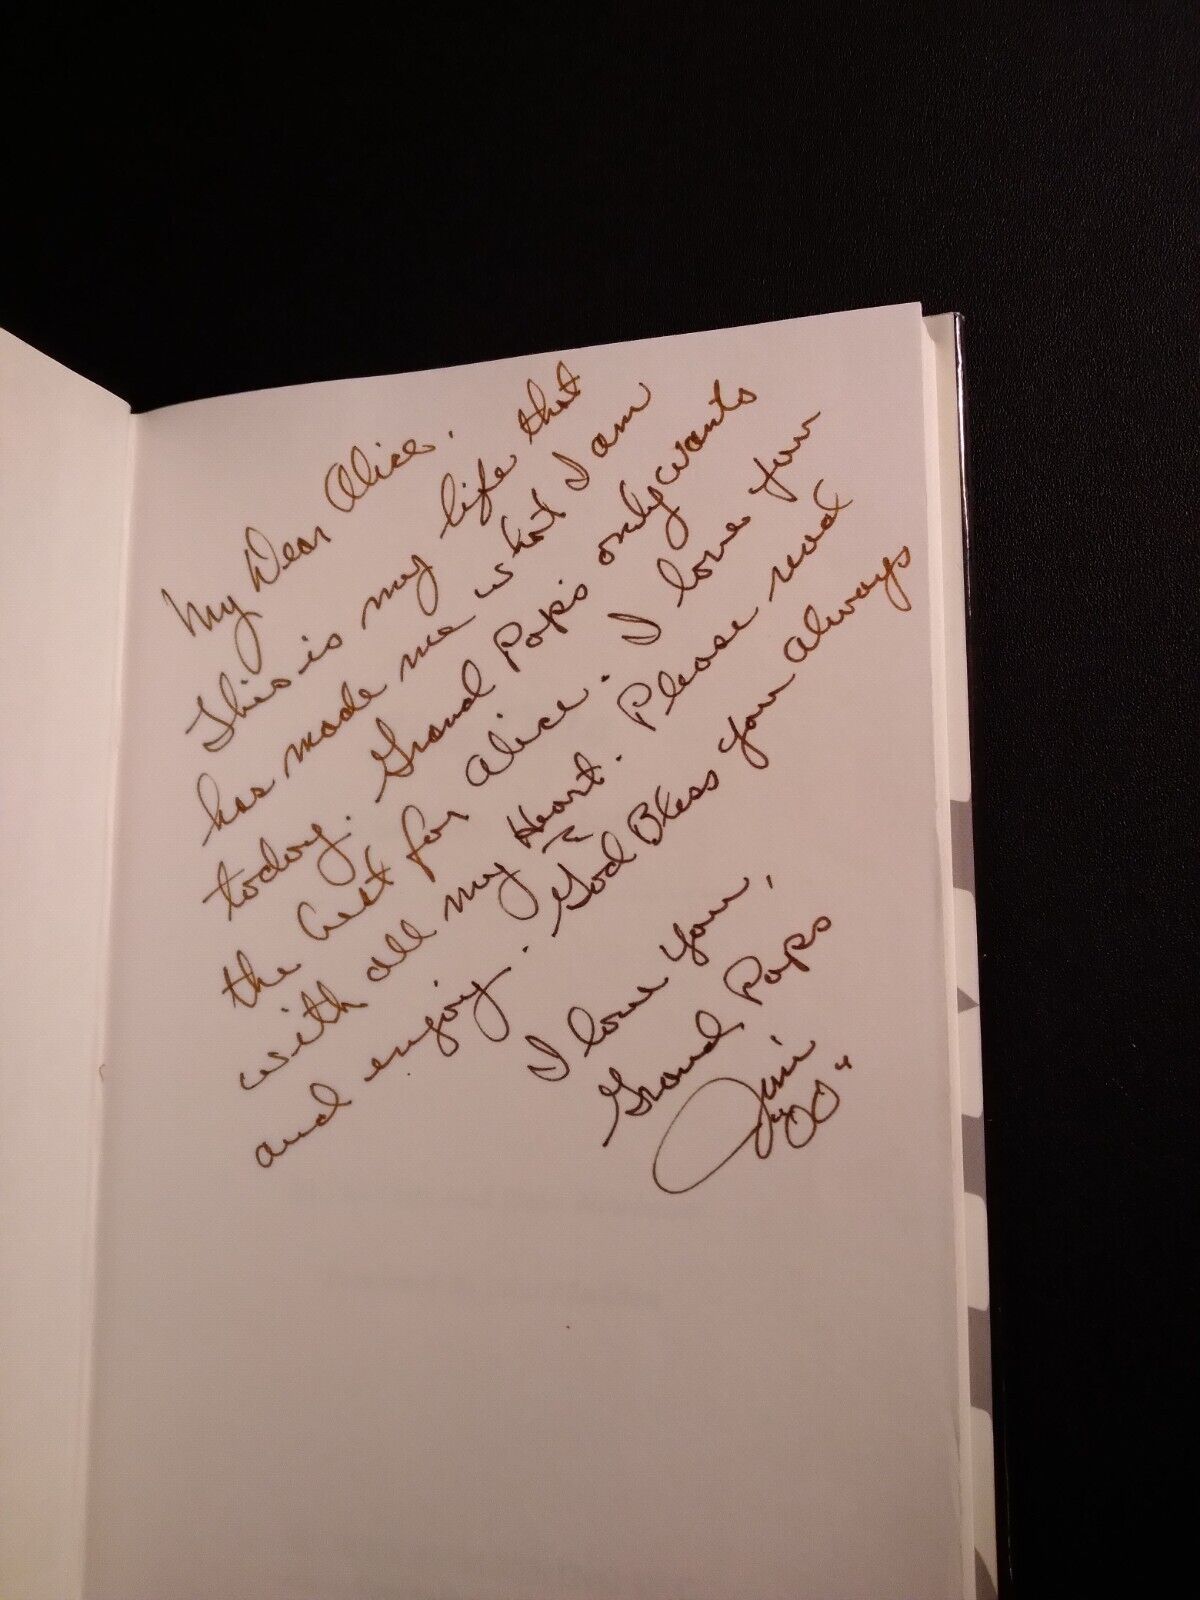 My Dear Alice.
This is my life that
has made me what I am
today. Grand Pops only wants
the best for Alice. I love you
with all my Heart. Please read
and enjoy. God Bless you always
I love you,
Grand Pops
Jim